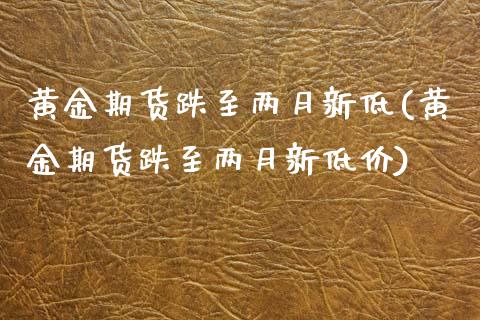 黄金期货跌至两月新低(黄
金期货跌至两月新低价)